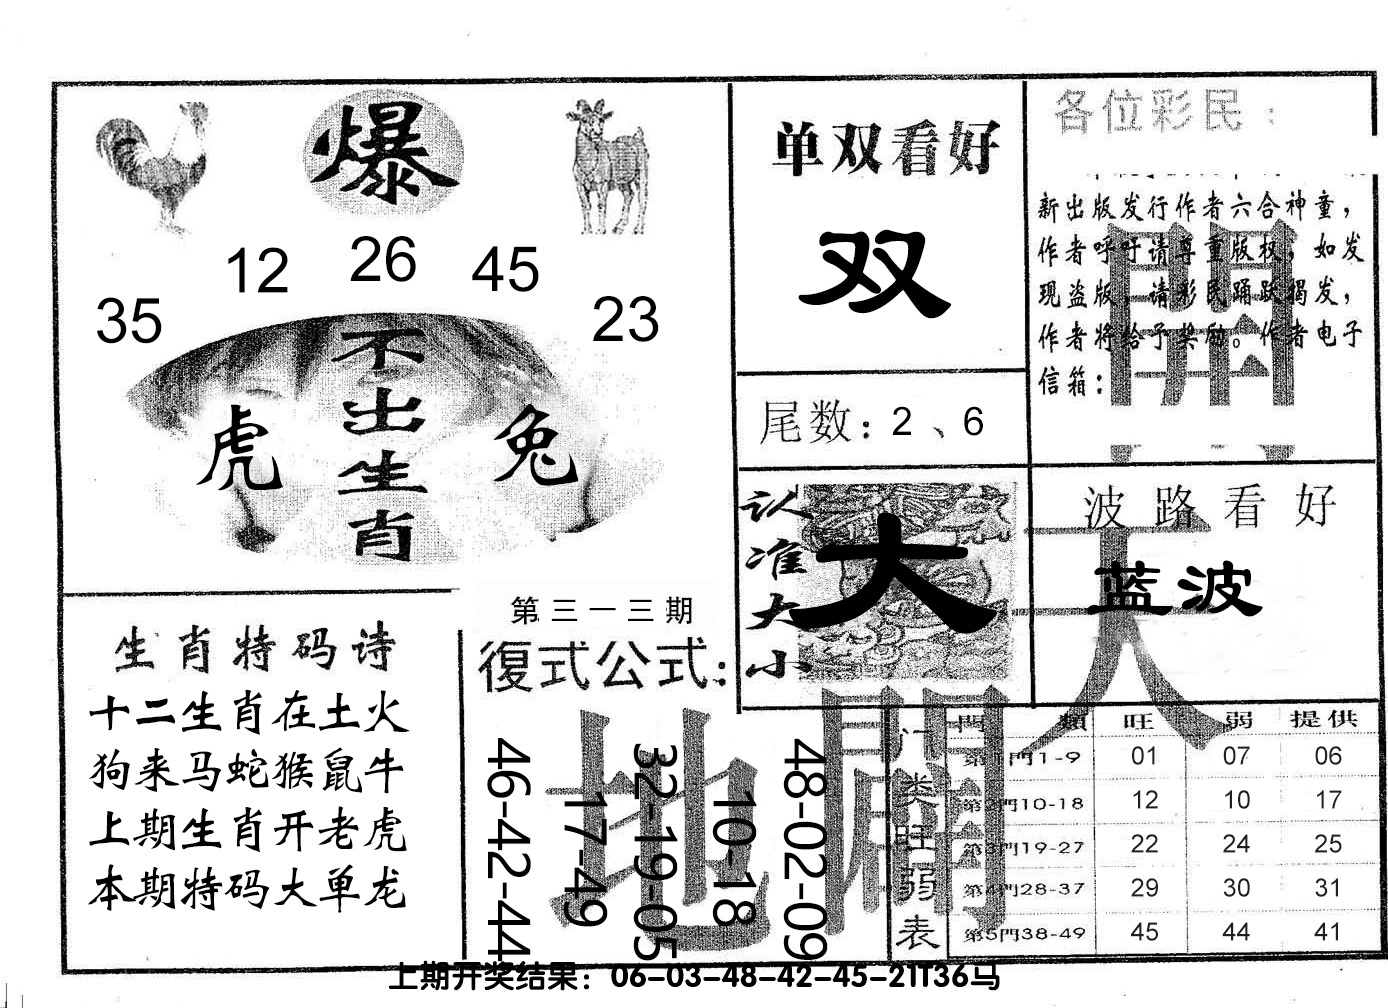 爆
35 12 26 45 23
不出生肖
虎 兔
生肖特码诗
十二生肖在土火
狗来马蛇猴鼠牛
上期生肖开老虎
本期特码大单龙
第三一三期
復式公式:
46-42-44
17-49
32-19-05
10-18
48-02-09
单双看好
双
尾数: 2、6
认准大小
大
各位彩民:
新出版发行作者六合神童,
作者呼吁请尊重版权,如发
现盗版,请彩民踊跃揭发,
作者将给予奖励。作者电子
信箱:
波路看好
蓝波
天
地
開
門类旺弱表
門類 旺 弱 提供
第1門1-9 01 07 06
第2門10-18 12 10 17
第3門19-27 22 24 25
第4門28-37 29 30 31
第5門38-49 45 44 41
上期开奖结果: 06-03-48-42-45-21T36马